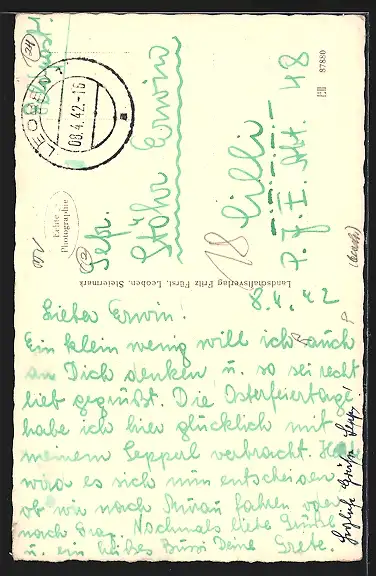 Feldpost!
LEOBEN 1
08.4.42-16
a
Gefr.
Stöhr Erwin
18 Cilli
P. J. E. Abt. 48
Echte
Photographie
Landschaftsverlag Fritz Fürst, Leoben, Steiermark
87880
8.4.42
Lieber Erwin!
Ein klein wenig will ich auch
an Dich denken u. so sei recht
lieb gegrüßt. Die Osterfeiertage
habe ich hier glücklich mit
meinem Sepperl verbracht. Heute
wird es sich nun entscheiden
ob wir nach Murau fahren oder
nach Graz. Nochmals liebe Grüße
u. ein liebes Bussi Deine Grete.
Herzliche Grüße Sepp!